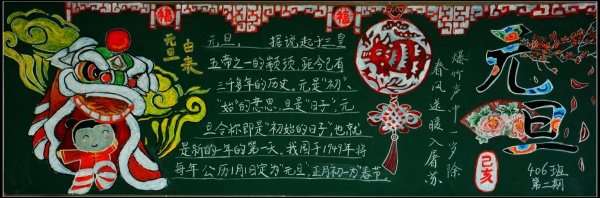 福
福
元旦
由来
元旦，据说起于三皇
五帝之一的颛顼，距今已有
三千多年的历史。元是"初"、
"始"的意思，旦是"日子"，元
旦合称即是"初始的日子"也就
是新的一年的第一天。我国于1949年将
每年公历1月1日定为"元旦"，正月初一为"春节"。
爆竹声中一岁除
春风送暖入屠苏
元旦
己亥
406班
第二期